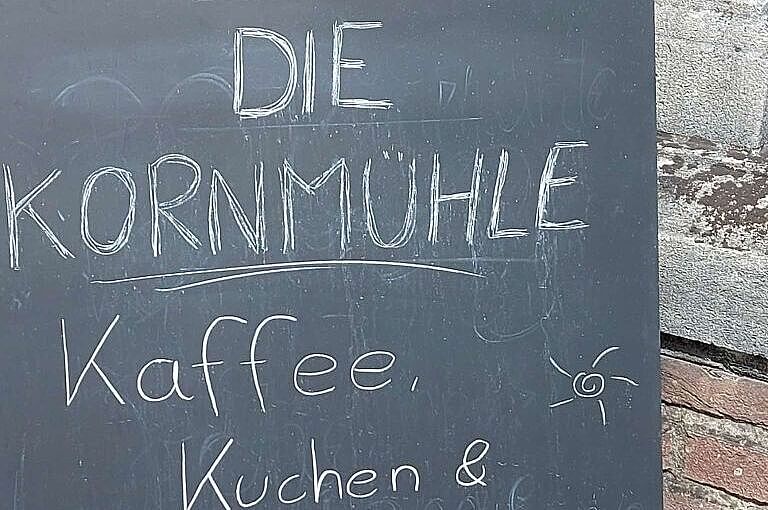 DIE
KORNMÜHLE
Kaffee,
Kuchen &